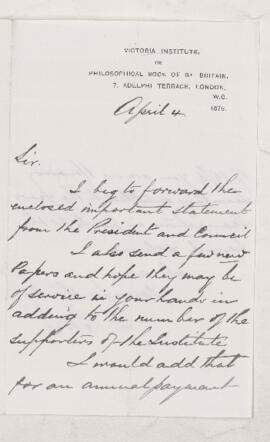 VICTORIA INSTITUTE,
OR
PHILOSOPHICAL SOCY OF GT BRITAIN,
7, ADELPHI TERRACE, LONDON,
W.C.
April 4. 1879.
Sir.
I beg to forward the
enclosed important statement
from the President and Council
I also send a few new
Papers and hope they may be
of service in your hands in
adding to the number of the
supporters of the Institute
I would add that
for an annual payment